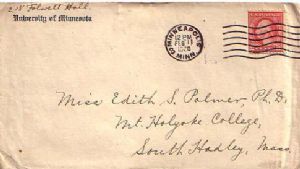 Folwell Hall.
University of Minnesota
MINNEAPOLIS
12 PM
FEB
MINN.
Miss Edith S. Palmer, Ph.D.
Mt. Holyoke College,
South Hadley, Mass.